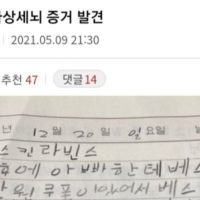 상세뇌 증거 발견
2021.05.09 21:30
추천 47 댓글 14
년 12월 20일 일요일
스킨라빈스
에 아빠한테 베스
쿠폰이 있어서 베스